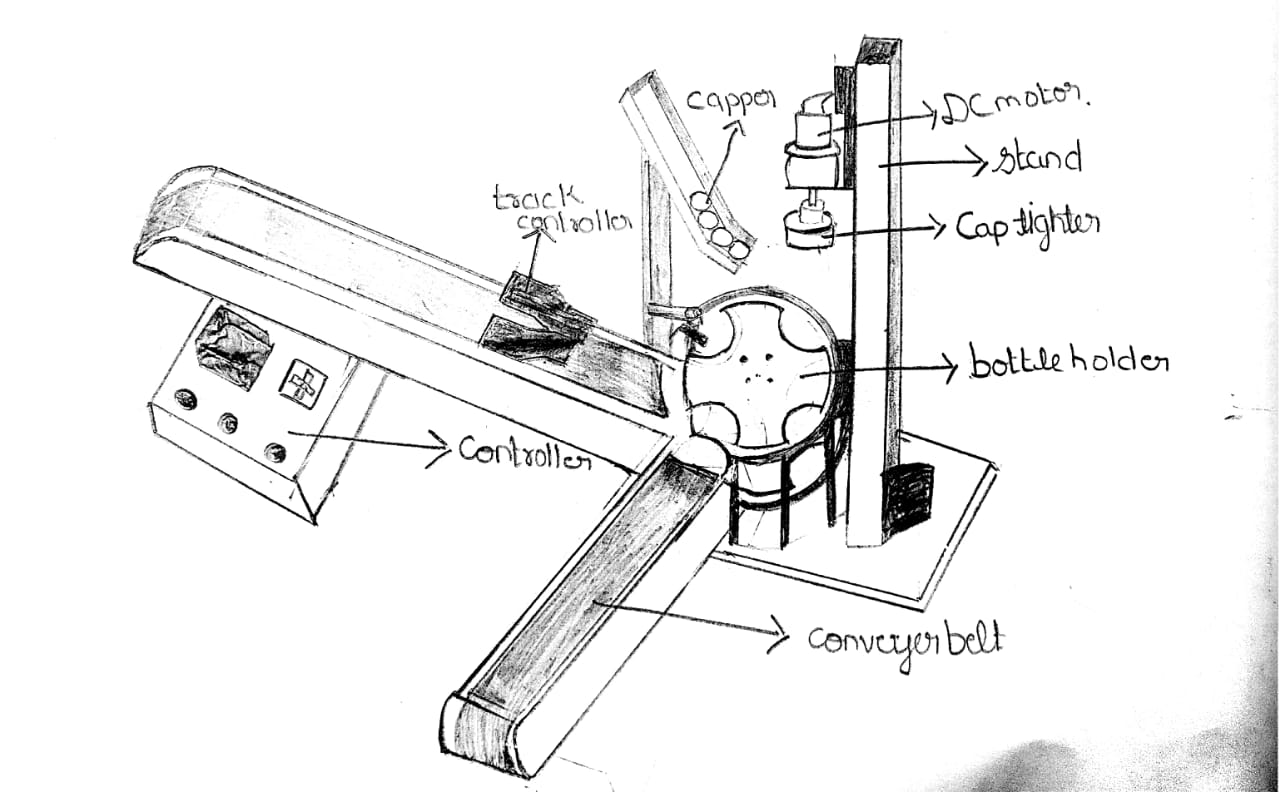 capper
DC motor.
stand
track
controller
Cap tighter
bottle holder
Controller
conveyer belt